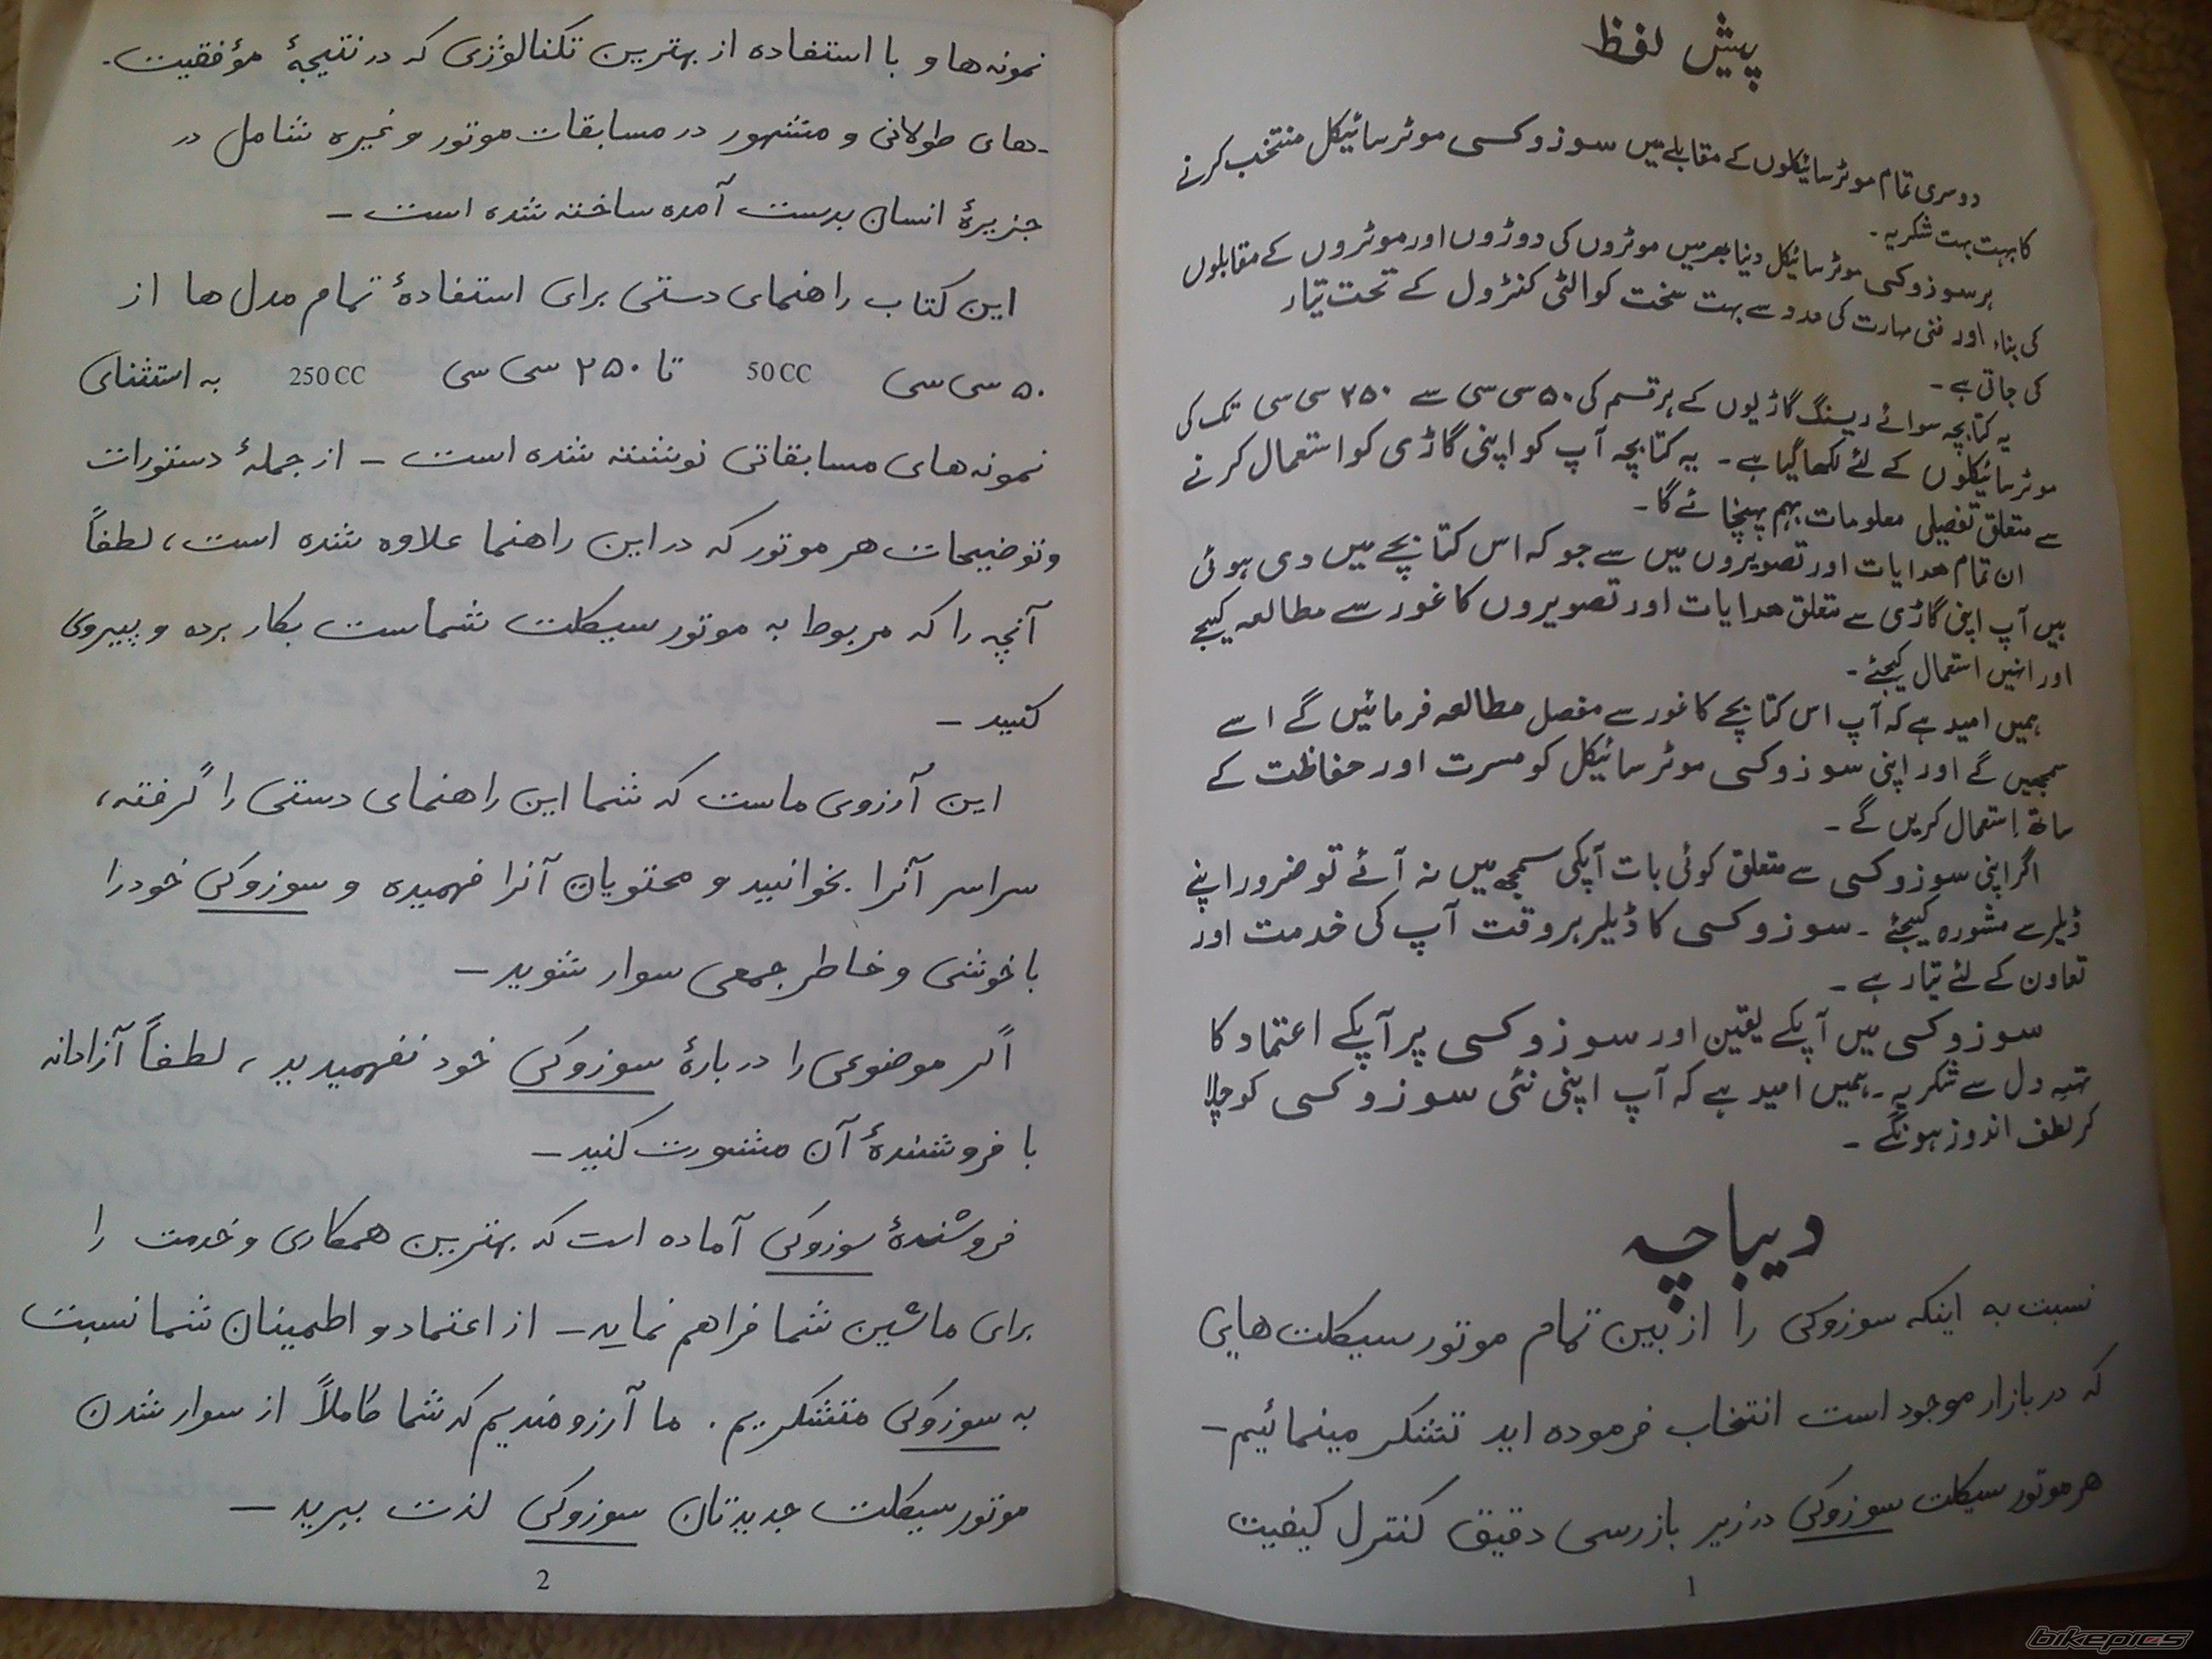 پیش لفظ
دوسری تمام موٹر سائیکلوں کے مقابلے میں سوزوکسی موٹر سائیکل منتخب کرنے
کا بہت بہت شکریہ ۔
ہر سوزوکسی موٹر سائیکل دنیا بھر میں موٹروں کی دوڑوں اور موٹروں کے مقابلوں
کی بناء اور فنی مہارت کی مدد سے بہت سخت کوالٹی کنٹرول کے تحت تیار
کی جاتی ہے ۔
یہ کتابچہ سوائے ریسنگ گاڑیوں کے ہر قسم کی ۵۰ سی سی سے ۲۵۰ سی سی تک کی
موٹر سائیکلوں کے لئے لکھا گیا ہے ۔ یہ کتابچہ آپ کو اپنی گاڑی کو استعمال کرنے
سے متعلق تفصیلی معلومات بہم پہنچائے گا ۔
ان تمام ہدایات اور تصویروں میں سے جو کہ اس کتابچے میں دی ہوئی
ہیں آپ اپنی گاڑی سے متعلق ہدایات اور تصویروں کا غور سے مطالعہ کیجئے
اور انہیں استعمال کیجئے ۔
ہمیں امید ہے کہ آپ اس کتابچے کا غور سے مفصل مطالعہ فرمائیں گے اسے
سمجھیں گے اور اپنی سوزوکسی موٹر سائیکل کو مسرت اور حفاظت کے
ساتھ استعمال کریں گے ۔
اگر اپنی سوزوکسی سے متعلق کوئی بات آپکی سمجھ میں نہ آئے تو ضرور اپنے
ڈیلر سے مشورہ کیجئے ۔ سوزوکسی کا ڈیلر ہر وقت آپ کی خدمت اور
تعاون کے لئے تیار ہے ۔
سوزوکسی میں آپکے یقین اور سوزوکسی پر آپکے اعتماد کا
تہہ دل سے شکریہ ۔ ہمیں امید ہے کہ آپ اپنی نئی سوزوکسی کو چلا
کر لطف اندوز ہونگے ۔
دیباچہ
نسبت به اینکه سوزوکی را از بین تمام موتور سیکلت هایی
که در بازار موجود است انتخاب فرموده اید تشکر مینمائیم –
هر موتور سیکلت سوزوکی در زیر بازرسی دقیق کنترل کیفیت
1
نمونه ها و با استفاده از بهترین تکنالوژی که در نتیجهٔ مؤفقیت -
-های طولانی و مشهور در مسابقات موتور و غیره شامل در
جزیرهٔ انسان بدست آمده ساخته شده است –
این کتاب راهنمای دستی برای استفادهٔ تمام مدل ها از
۵۰ سی سی 50CC تا ۲۵۰ سی سی 250CC به استثنای
نمونه های مسابقاتی نوشته شده است – از جملهٔ دستورات
و توضیحات هر موتور که در این راهنما علاوه شده است، لطفاً
آنچه را که مربوط به موتور سیکلت شماست بکار برده و پیروی
کنید –
این آرزوی ماست که شما این راهنمای دستی را گرفته،
سراسر آنرا بخوانید و محتویات آنرا فهمیده و سوزوکی خود را
با خوشی و خاطر جمعی سوار شوید –
اگر موضوعی را دربارهٔ سوزوکی خود نفهمیدید، لطفاً آزادانه
با فروشندهٔ آن مشورت کنید –
فروشندهٔ سوزوکی آماده است که بهترین همکاری و خدمت را
برای ماشین شما فراهم نماید – از اعتماد و اطمینان شما نسبت
به سوزوکی متشکریم . ما آرزومندیم که شما کاملاً از سوار شدن
موتور سیکلت جدیدتان سوزوکی لذت ببرید –
2
bikepics